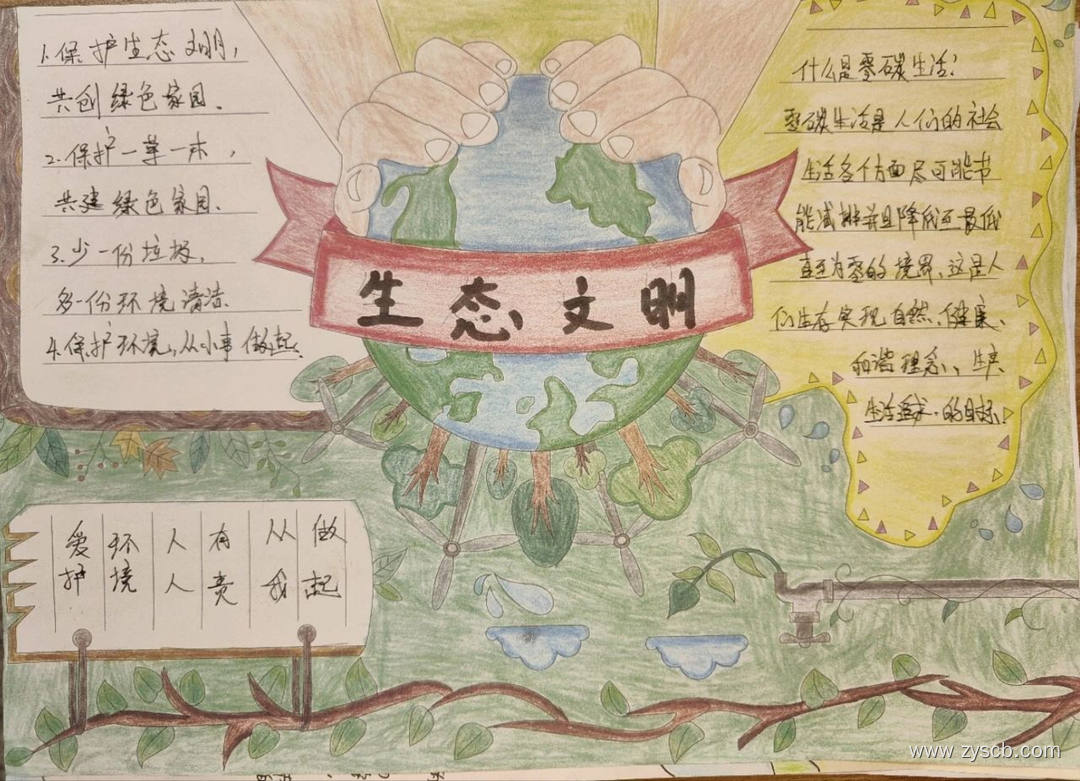 1.保护生态文明，
共创绿色家园.
2.保护一草一木，
共建绿色家园.
3.少一份垃圾，
多一份环境清洁.
4.保护环境，从小事做起.
生态文明
什么是零碳生活？
零碳生活是人们的社会
生活各个方面尽可能节
能减排并且降低至最低
直至为零的境界，这是人
们生存实现自然、健康、
和谐理念、生
生活追求的目标.
爱护
环境
人人
有责
从我
做起
www.zyscb.com